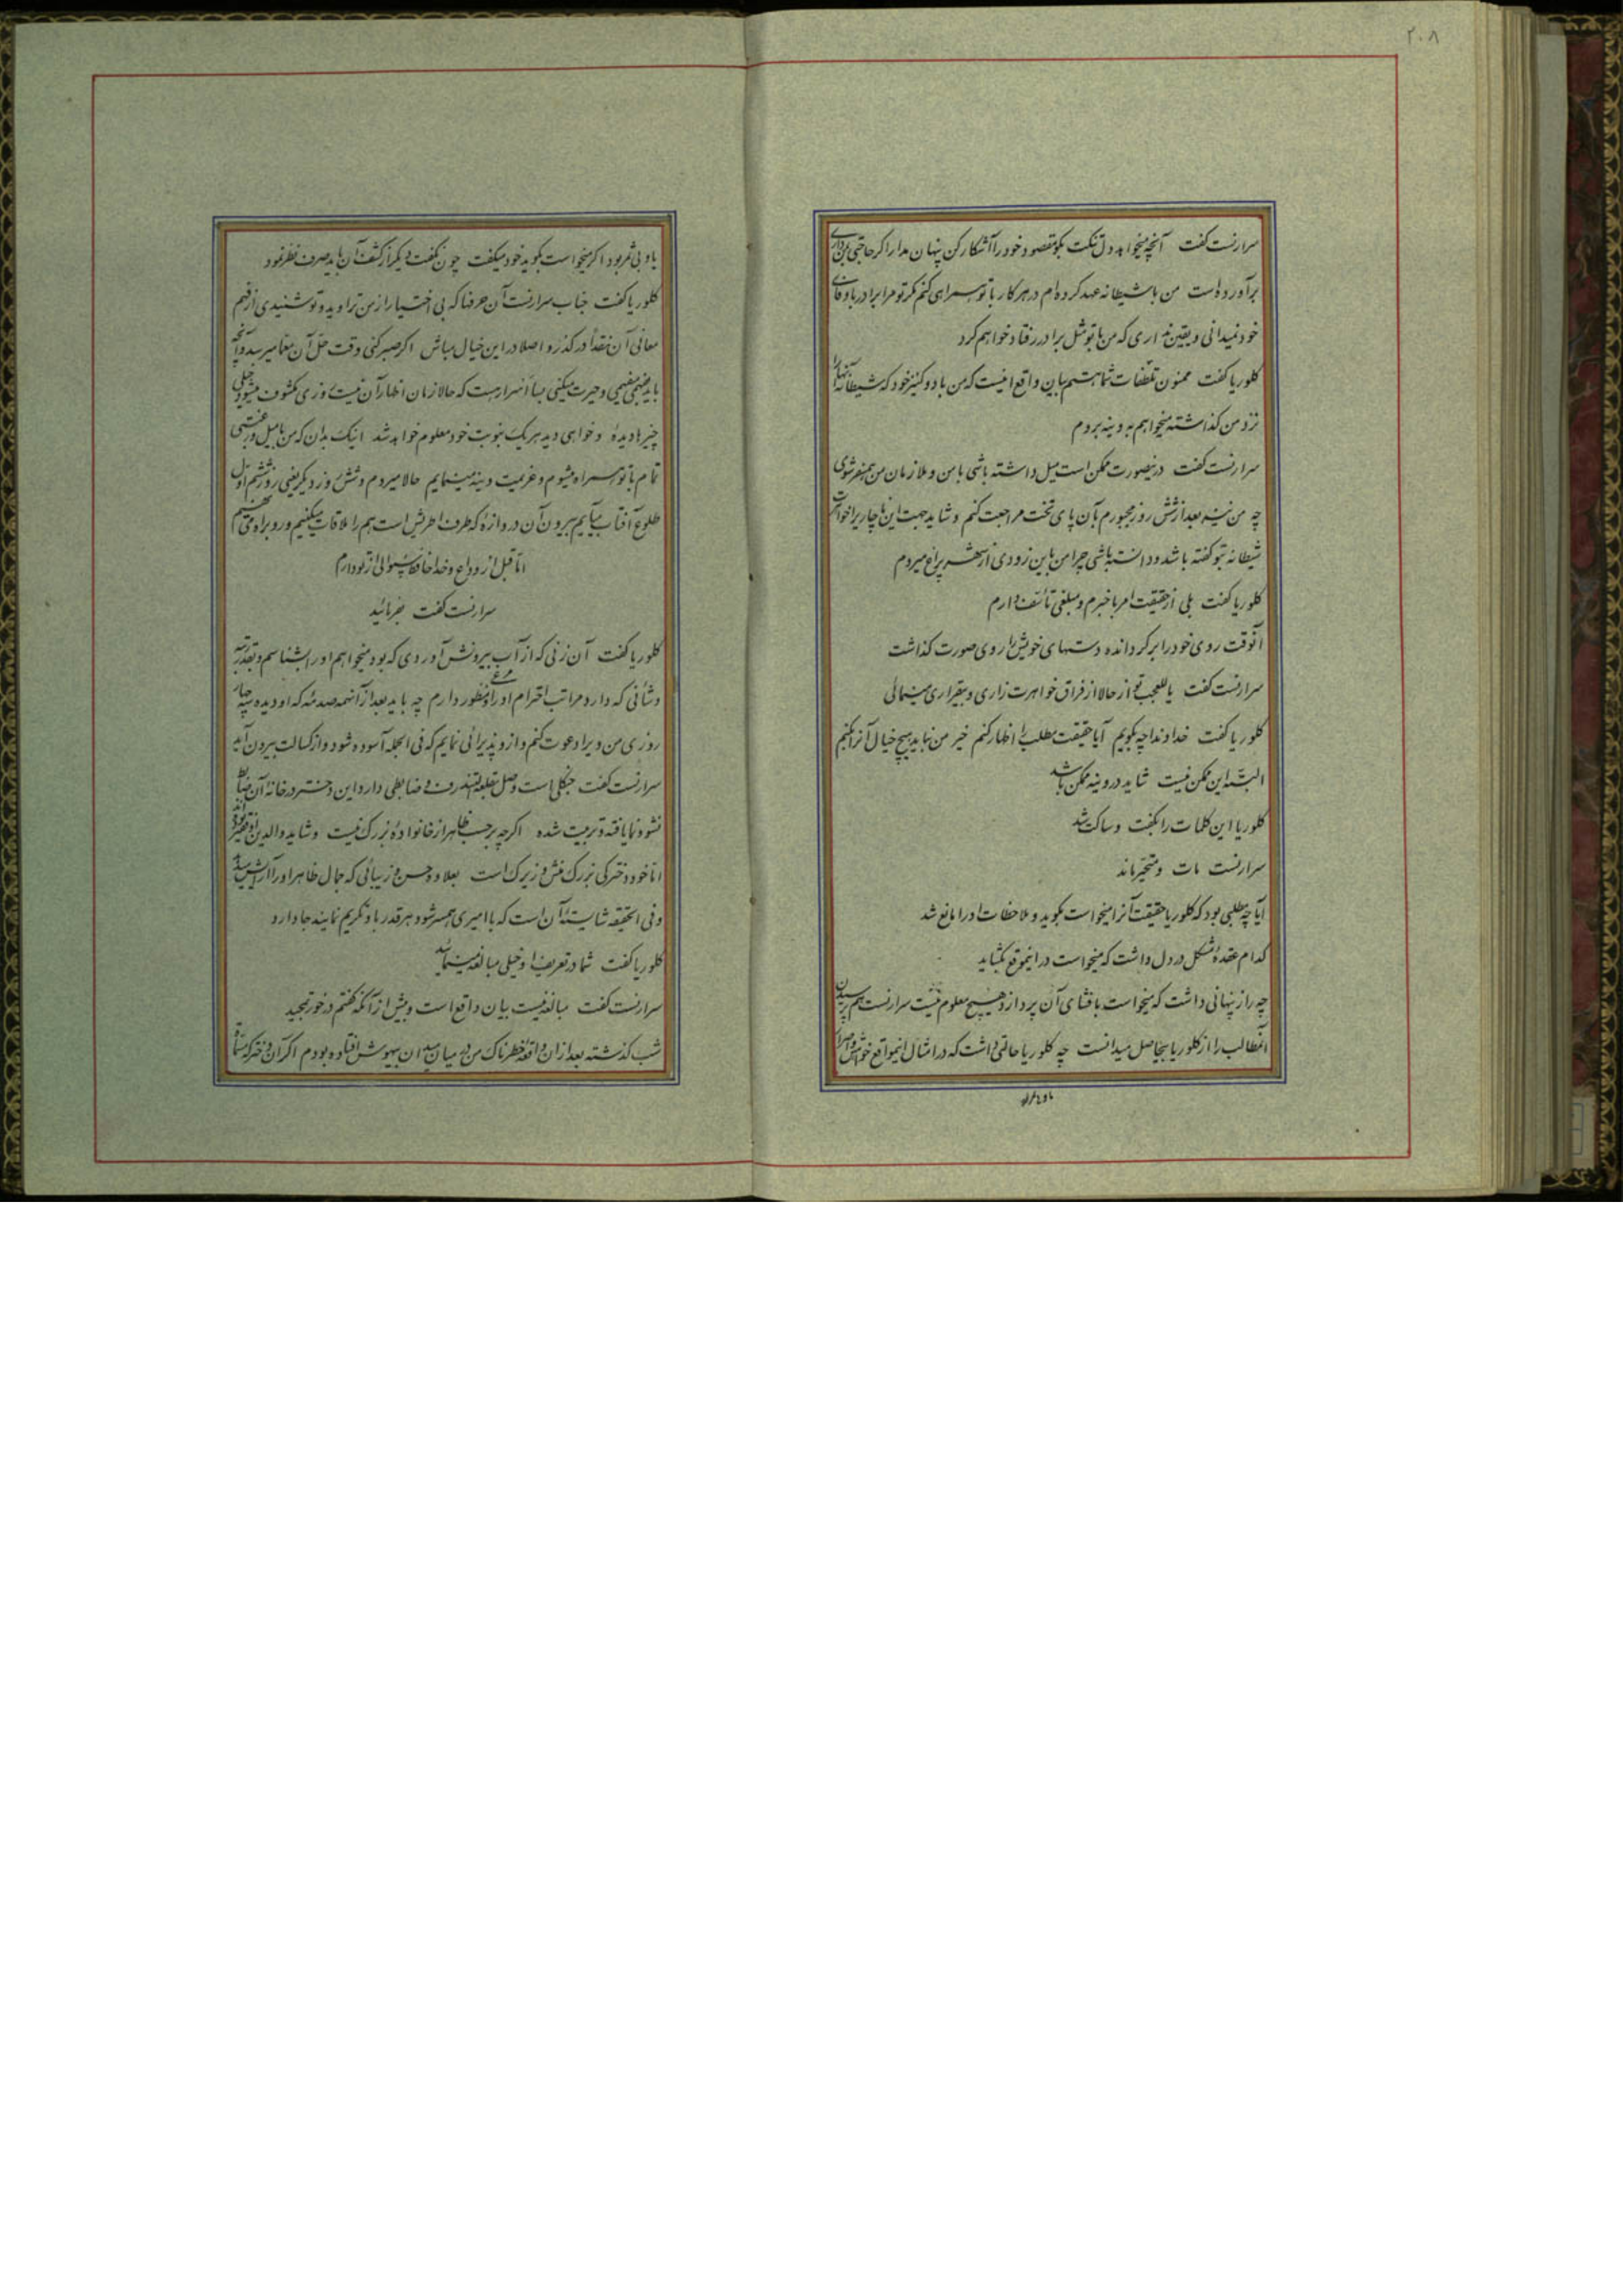 ۲۰۸
سرارنست گفت آنچه میخواهد دل تنگت بگو مقصود خود را آشکار کن پنهان مدار اگر حاجتی داری
برآورده است من با شیطانه عهد کرده‌ام در هر کار با تو همراهی کنم مگر تو مرا برادر با وفای
خود نمیدانی و یقین نداری که من با تو مثل برادر رفتار خواهم کرد
کلوریا گفت ممنون تلطفات شما هستم بیان واقع اینست که من با دو کنیز خود که شیطانه آنها را
نزد من گذاشته میخواهم به وینه بروم
سرارنست گفت در اینصورت ممکن است میل داشته باشی با من و ملازمان من همسفر شوی
چه من نیز بعد از شش روز مجبورم بآن پای تخت مراجعت کنم و شاید جهت این ناچاری را خواهرت
شیطانه بتو گفته باشد و دانسته باشی چرا من باین زودی ازین شهر براه میروم
کلوریا گفت بلی از حقیقت امر باخبرم و مبلغی تأسف دارم
آنوقت روی خود را برگردانده دستهای خویش را روی صورت گذاشت
سرارنست گفت یا للعجب تو از حالا از فراق خواهرت زاری و بیقراری مینمائی
کلوریا گفت خداوندا چه بگویم آیا حقیقت مطلب را اظهار کنم خیر من نباید هیچ خیال آنرا بکنم
البته این ممکن نیست شاید در وینه ممکن باشد
کلوریا این کلمات را بگفت و ساکت شد
سرارنست مات و متحیر ماند
آیا چه مطلبی بود که کلوریا حقیقت آنرا میخواست بگوید و ملاحظات او را مانع شد
کدام عقده مشکل در دل داشت که میخواست در اینموقع بگشاید
چه راز پنهانی داشت که میخواست بافشای آن پردازد هیچ معلوم نیست سرارنست هم پرسیدن
آنمطالب را از کلوریا بیحاصل میدانست چه کلوریا حالتی داشت که در امثال اینمواقع خواهش و اصرار
با او
یاو بی ثمر بود اگر میخواست بگوید خود میگفت چون نگفت دیگر از کشف آن باید صرف نظر نمود
کلوریا گفت جناب سرارنست آن حرفها که بی اختیار از من تراوید و تو شنیدی از فهم
معانی آن نقداً درگذر و اصلا در این خیال مباش اگر صبر کنی وقت حل آن معما میرسد و آنچه
باید بفهمی میفهمی و حیرت میکنی بسا اسرار هست که حالا زمان اظهار آن نیست روزی مکشوف میشود خیلی
چیزها دیدهٔ و خواهی دید هر یک بنوبت خود معلوم خواهد شد اینک بدان که من با میل و رغبتی
تمام با تو همراه میشوم و عزیمت وینه مینمایم حالا میروم و شش روز دیگر یعنی روز ششم اول
طلوع آفتاب بیایم بیرون آن دروازه که طرف است هم را ملاقات میکنیم و رو براه می نهیم
اما قبل از وداع و خداحافظی سؤالی از تو دارم
سرارنست گفت بفرمائید
کلوریا گفت آن زنی که از آب بیرونش آوردی که بود میخواهم او را بشناسم و بقدر مرتبه
و شأنی که دارد مراتب احترام او را منظور دارم چه باید بعد از آنهمه صدمه که او دیده و بیچاره
روزی من ویرا دعوت کنم و از او پذیرائی نمایم که فی الجمله آسوده شود و از کسالت بیرون آید
سرارنست گفت جنگلی است وصل بقلعه و ضابطی دارد این دختر در خانه آن ضابط
نشو و نما یافته و تربیت شده اگرچه بر حسب ظاهر از خانوادهٔ بزرگ نیست و شاید والدین او فقیر بوده‌اند
اما خود دختری بزرگ منش و زیرک است بعلاوه حسن و زیبائی که جمال ظاهر او را آرایش میدهد
و فی الحقیقه شایسته آن است که با امیری همسر شود و هر قدر باو تکریم نمایند جا دارد
کلوریا گفت شما در تعریف او خیلی مبالغه مینمائید
سرارنست گفت مبالغه نیست بیان واقع است و بیش از آنکه گفتم درخور تمجید
شب گذشته بعد از آن واقعهٔ خطرناک من در میان میدان بیهوش افتاده بودم اگر آن دخترک